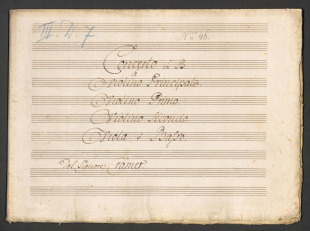 III. D. 7
No. 46.
Concerto à B
Violino Principale
Violino Primo
Violino Secondo
Viola, è Basso.
Del Signore Cramer